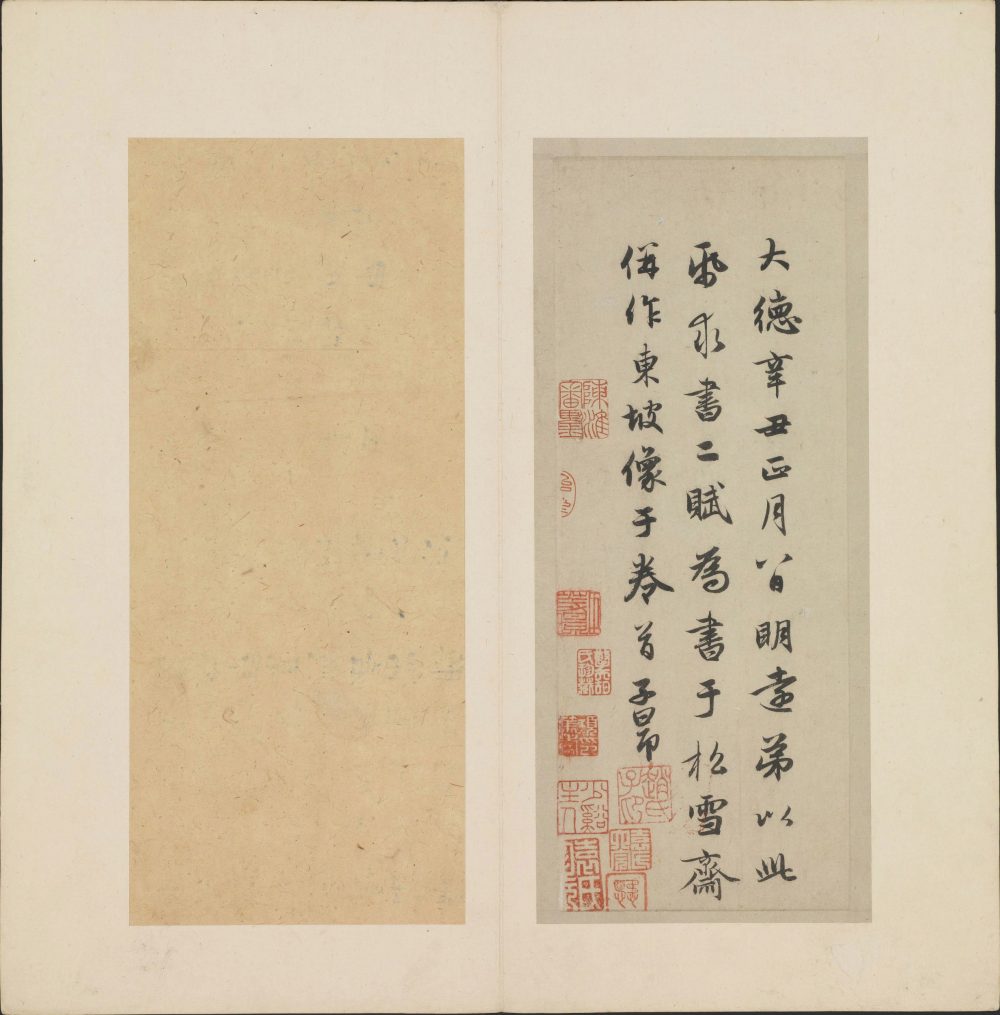 大德辛丑正月八日明遠弟以此
紙求書二賦為書于松雪齋
併作東坡像于卷首子昂
陳淮
趙氏子昂